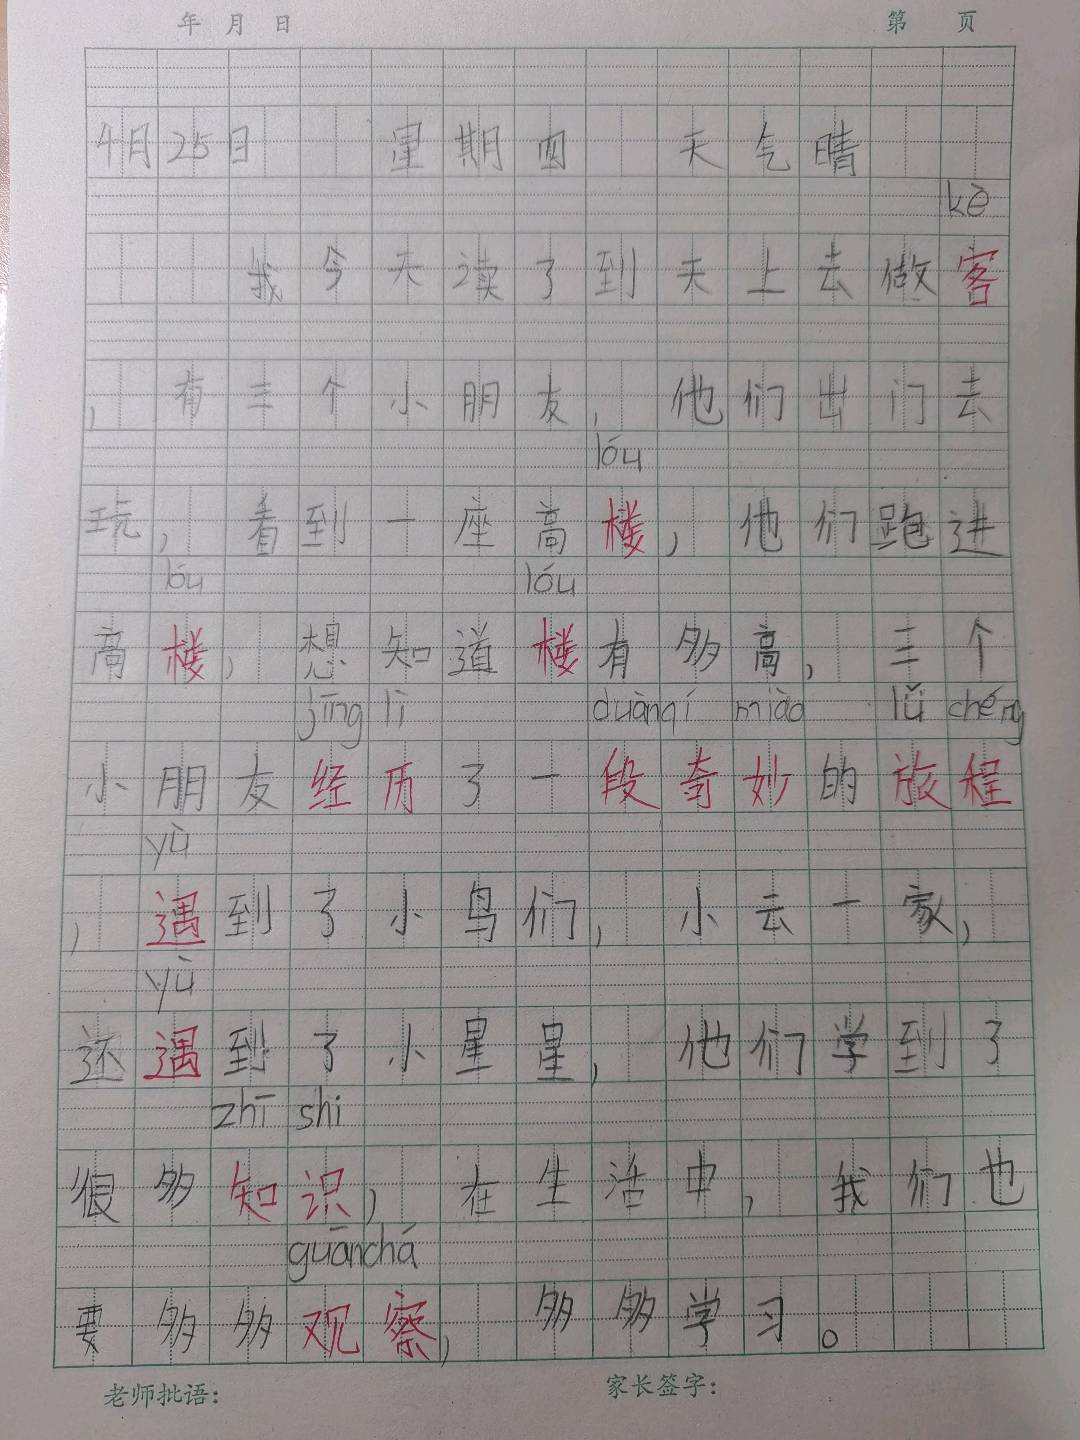 年 月 日 第 页
4月25日 星期四 天气晴
kè
我今天读了到天上去做客
，有三个小朋友，他们出门去
lóu
玩，看到一座高楼，他们跑进
lóu lóu
高楼，想知道楼有多高，三个
jīng lì duàn qí miào lǚ chéng
小朋友经历了一段奇妙的旅程
yù
，遇到了小鸟们，小云一家，
yù
还遇到了小星星，他们学到了
zhī shi
很多知识，在生活中，我们也
guān chá
要多多观察，多多学习。
老师批语： 家长签字：